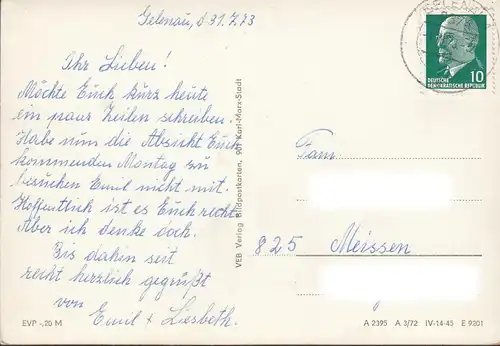 Gelenau, d 31.7.73
Ihr Lieben!
Möchte Euch kurz heute
ein paar Zeilen schreiben.
Habe nun die Absicht Euch
kommenden Montag zu
besuchen Emil nicht mit.
Hoffentlich ist es Euch recht
Aber ich denke doch.
Bis dahin seit
recht herzlich gegrüßt
von
Emil + Liesbeth.
EVP -,20 M
VEB Verlag Bildpostkarten, 901 Karl-Marx-Stadt
GELENAU
DEUTSCHE
DEMOKRATISCHE REPUBLIK
10
Fam.
825 Meissen
A 2395 A 3/72 IV-14-45 E 9201